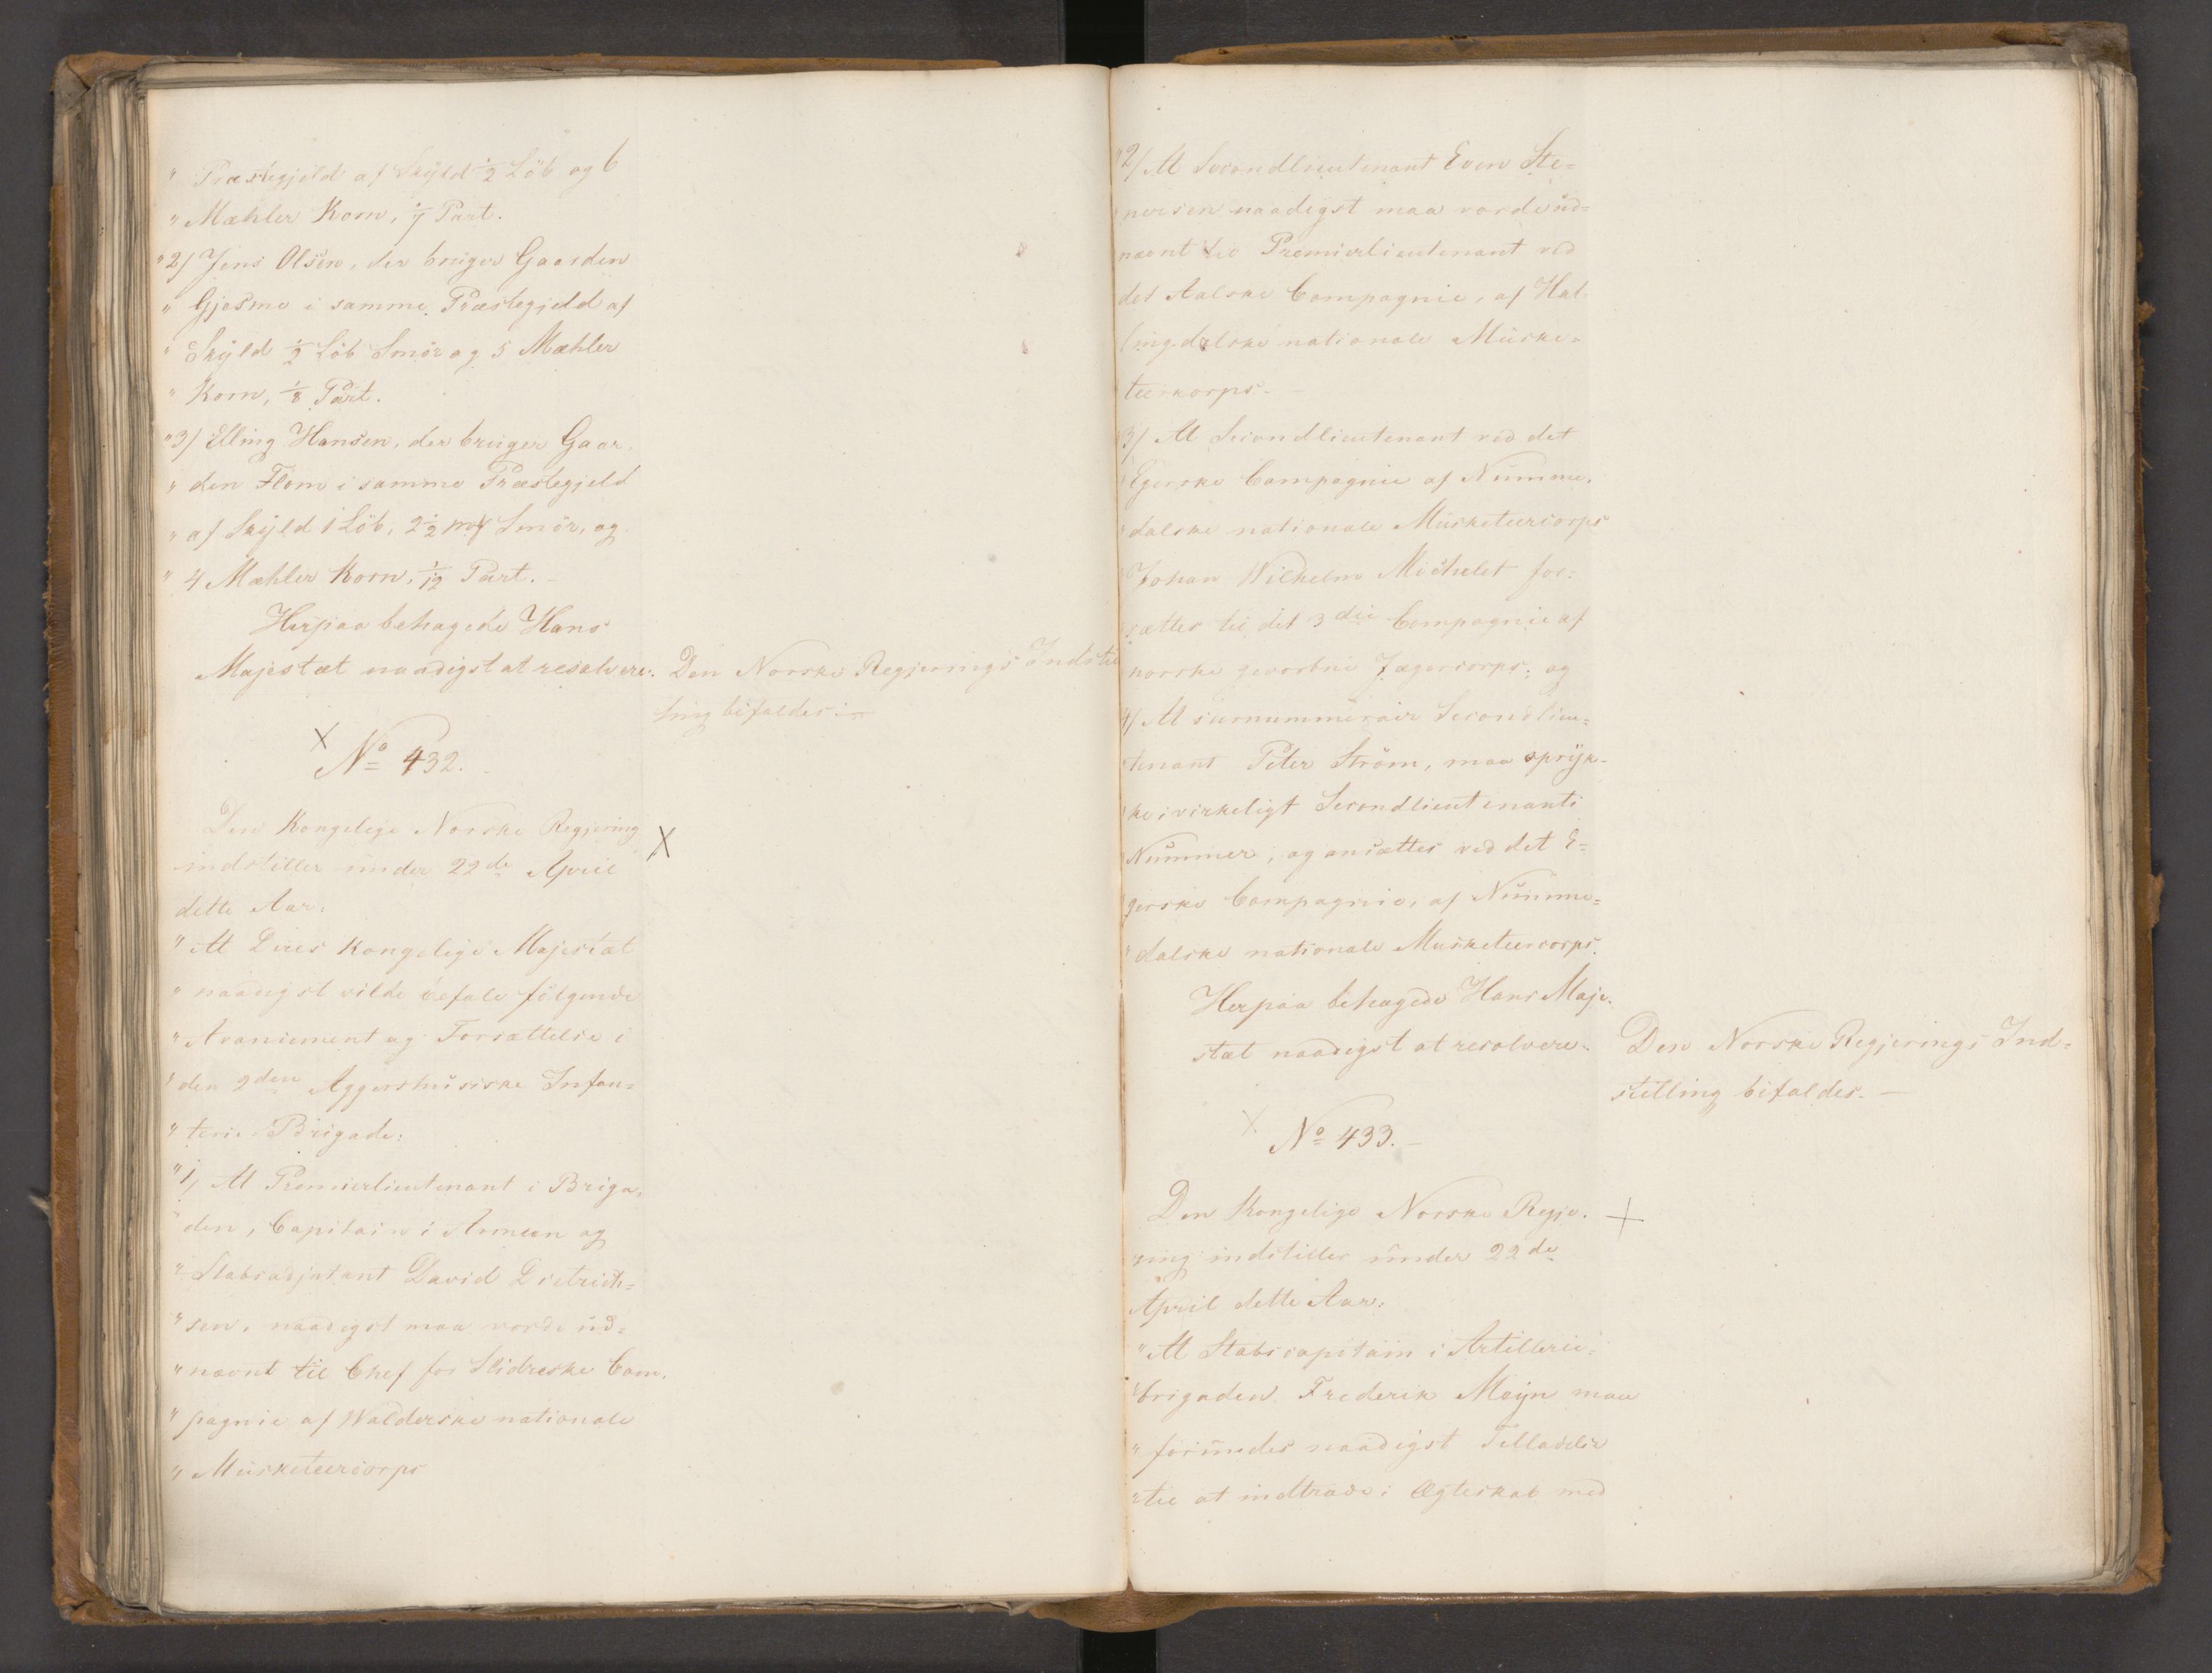 " Præstegjeld af Skÿld 1/2 Löb og 6
" Mæhler Korn, 1/7 Part.
" 2/ Jens Olsen, der brüger Gaarden
" Gjosme i samme Præstegjeld af
" Skÿld 1/2 Löb Smör og 5 Mæhler
" Korn, 1/8 Part.
" 3/ Elling Hansen, der brüger Gaar-
" den Flom i samme Præstegjeld
" af Skÿld 1 Löb, 2 1/2 Smör, og
" 4 Mæhler Korn, 1/12 Part. -
Herpaa behagede Hans
Majestæt naadigst at resolvere:
Den Norske Regjerings Indstil
ling bifaldes: -
X
No 432.
Den Kongelige Norske Regjering
X
indstiller ünder 22de April
dette Aar:
" At Deres Kongelige Majestæt
" naadigst vilde befale fölgende
" Avancement og Forsættelse i
" den 2den Aggershüsiske Infan=
" terie Brigade:
" 1, At Premierlieutenant i Briga-
" den, Capitain i Armeen og
" Stabsadjutant David Dietrich=
" sen, naadigst maa vorde üd=
" nævnt til Chef for Slidreske Com-
" pagnie af Walderske nationale
" Müsketeercorps
" 2/ At Secondlieutenant Even Ste=
nersen naadigst maa vorde üd=
nævnt til Premierlieutenant ved
det Aalske Compagnie, af Hal-
lingdalske nationale Müske=
teerkorps. -
3/ At Secondlieutenant ved det
Egerske Compagnie af Numme-
" dalske nationale Müsketeercorps
" Johan Wilhelm Michelet for=
sættes til det 3die Compagnie af
norske gevorbne Jægercorps; og
4/ At surnummerair Secondlieu=
tenant Peter Ström, maa oprÿk-
ke i virkeligt Secondlieutenants
Nümmer, og ansættes ved det E=
gerske Compagnie, af Nümme=
" dalske nationale Musketeercorps.
Herpaa behagede Hans Maje-
stæt naadigst at resolvere:
Den Norske Regjerings Ind=
stilling bifaldes. -
X
No 433. -
Den Kongelige Norske Regje-
+
ring indstiller ünder 22de
April dette Aar:
" At Stabscapitain i Artillerie=
" brigaden Frederik Meÿn maa
" foründes naadigst Tilladelse
" til at indtræde i Ægteskab med